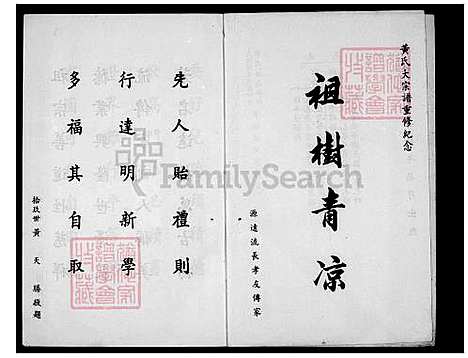 黃氏大宗譜重修紀念
祖樹青凉
源遠流長孝友傳家
先人貽禮則
行達明新學
多福其自取
拾玖世黃天勝敬題
FamilySearch